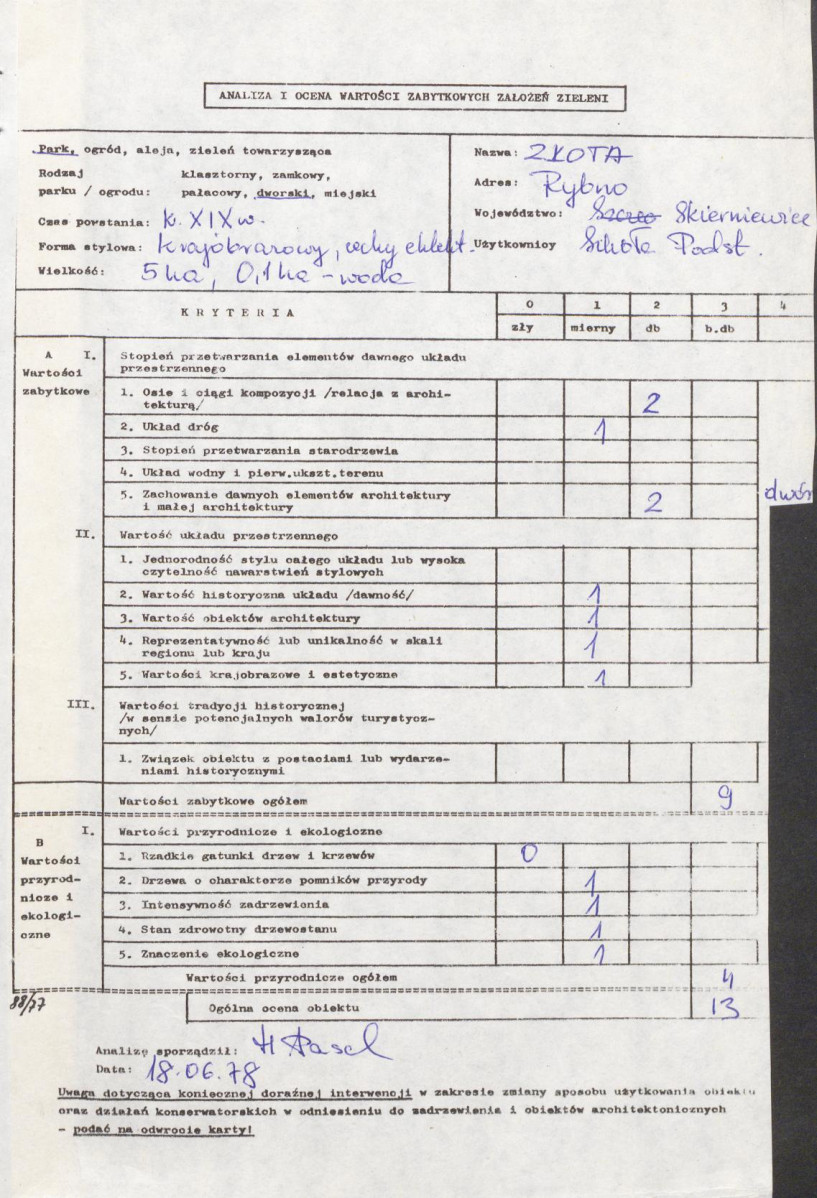 ANALIZA I OCENA WARTOŚCI ZABYTKOWYCH ZAŁOŻEŃ ZIELENI
Park, ogród, aleja, zieleń towarzysząca
Rodzaj klasztorny, zamkowy,
parku / ogrodu: pałacowy, dworski, miejski
Czas powstania: k. XIX w.
Forma stylowa: krajobrazowy, cechy eklekt.
Wielkość: 5 ha, 0,1 ha - woda
Nazwa: ZŁOTA
Adres: Rybno
Województwo: Skierniewice
Użytkownicy Szkoła Podst.
KRYTERIA
0 1 2 3 4
zły mierny db b.db
A I. Stopień przetwarzania elementów dawnego układu
Wartości przestrzennego
zabytkowe 1. Osie i ciągi kompozycji /relacja z archi-
tekturą/ 2
2. Układ dróg 1
3. Stopień przetwarzania starodrzewia
4. Układ wodny i pierw.ukszt.terenu
5. Zachowanie dawnych elementów architektury
i małej architektury 2 dwór
II. Wartość układu przestrzennego
1. Jednorodność stylu całego układu lub wysoka
czytelność nawarstwień stylowych
2. Wartość historyczna układu /dawność/ 1
3. Wartość obiektów architektury 1
4. Reprezentatywność lub unikalność w skali
regionu lub kraju 1
5. Wartości krajobrazowe i estetyczne 1
III. Wartości tradycji historycznej
/w sensie potencjalnych walorów turystycz-
nych/
1. Związek obiektu z postaciami lub wydarze-
niami historycznymi
Wartości zabytkowe ogółem 9
B I. Wartości przyrodnicze i ekologiczne
Wartości 1. Rzadkie gatunki drzew i krzewów 0
przyrod- 2. Drzewa o charakterze pomników przyrody 1
nicze i 3. Intensywność zadrzewienia 1
ekologi- 4. Stan zdrowotny drzewostanu 1
czne 5. Znaczenie ekologiczne 1
Wartości przyrodnicze ogółem 4
88/77 Ogólna ocena obiektu 13
Analizę sporządził: H
Data: 18.06.78
Uwaga dotycząca koniecznej doraźnej interwencji w zakresie zmiany sposobu użytkowania obiektu
oraz działań konserwatorskich w odniesieniu do zadrzewienia i obiektów architektonicznych
- podać na odwrocie karty!